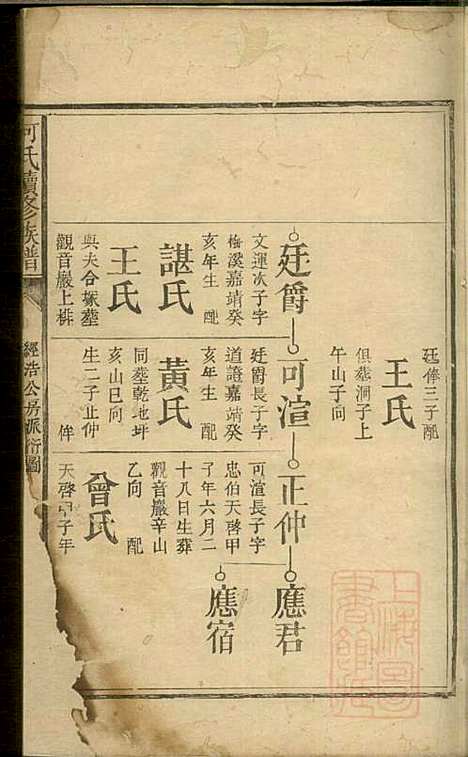 王氏
廷俸三子配
俱葬洞子上
午山子向
廷爵
文運次子字
梅溪嘉靖癸
亥年生　配
諶氏
王氏
與夫合塚葬
觀音巖上排
可渲
廷爵長子字
道證嘉靖癸
亥年生　配
黃氏
同葬乾地坪
亥山巳向
生二子正仲
正仲
可渲長子字
忠伯天啓甲
子年六月二
十八日生葬
觀音巖辛山
乙向　配
曾氏
天啓甲子年
應君
應宿
何氏續修族譜
經浩公房派衍圖
上海圖書館藏